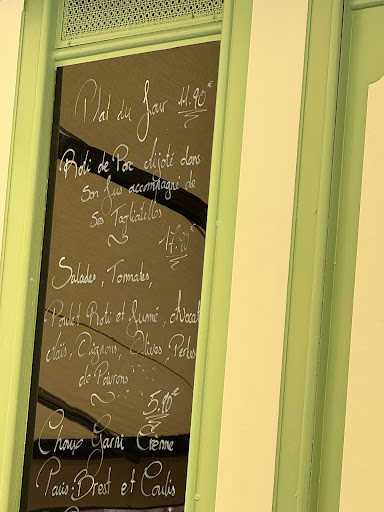 Plat du Jour 11.90€
Roti de Porc mijoté dans
son jus accompagné de
ses Tagliatelles
17.90€
Salades, Tomates,
Poulet Roti et fumé, Avocat
Maïs, Oignons, Olives, Perles
de Poivrons
5.90€
Choux Garni Crème
Paris-Brest et Coulis